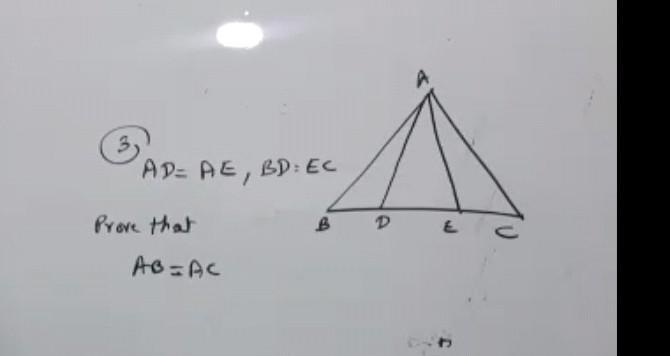 A
3
AD = AE, BD = EC
B D E C
Prove that
AB = AC